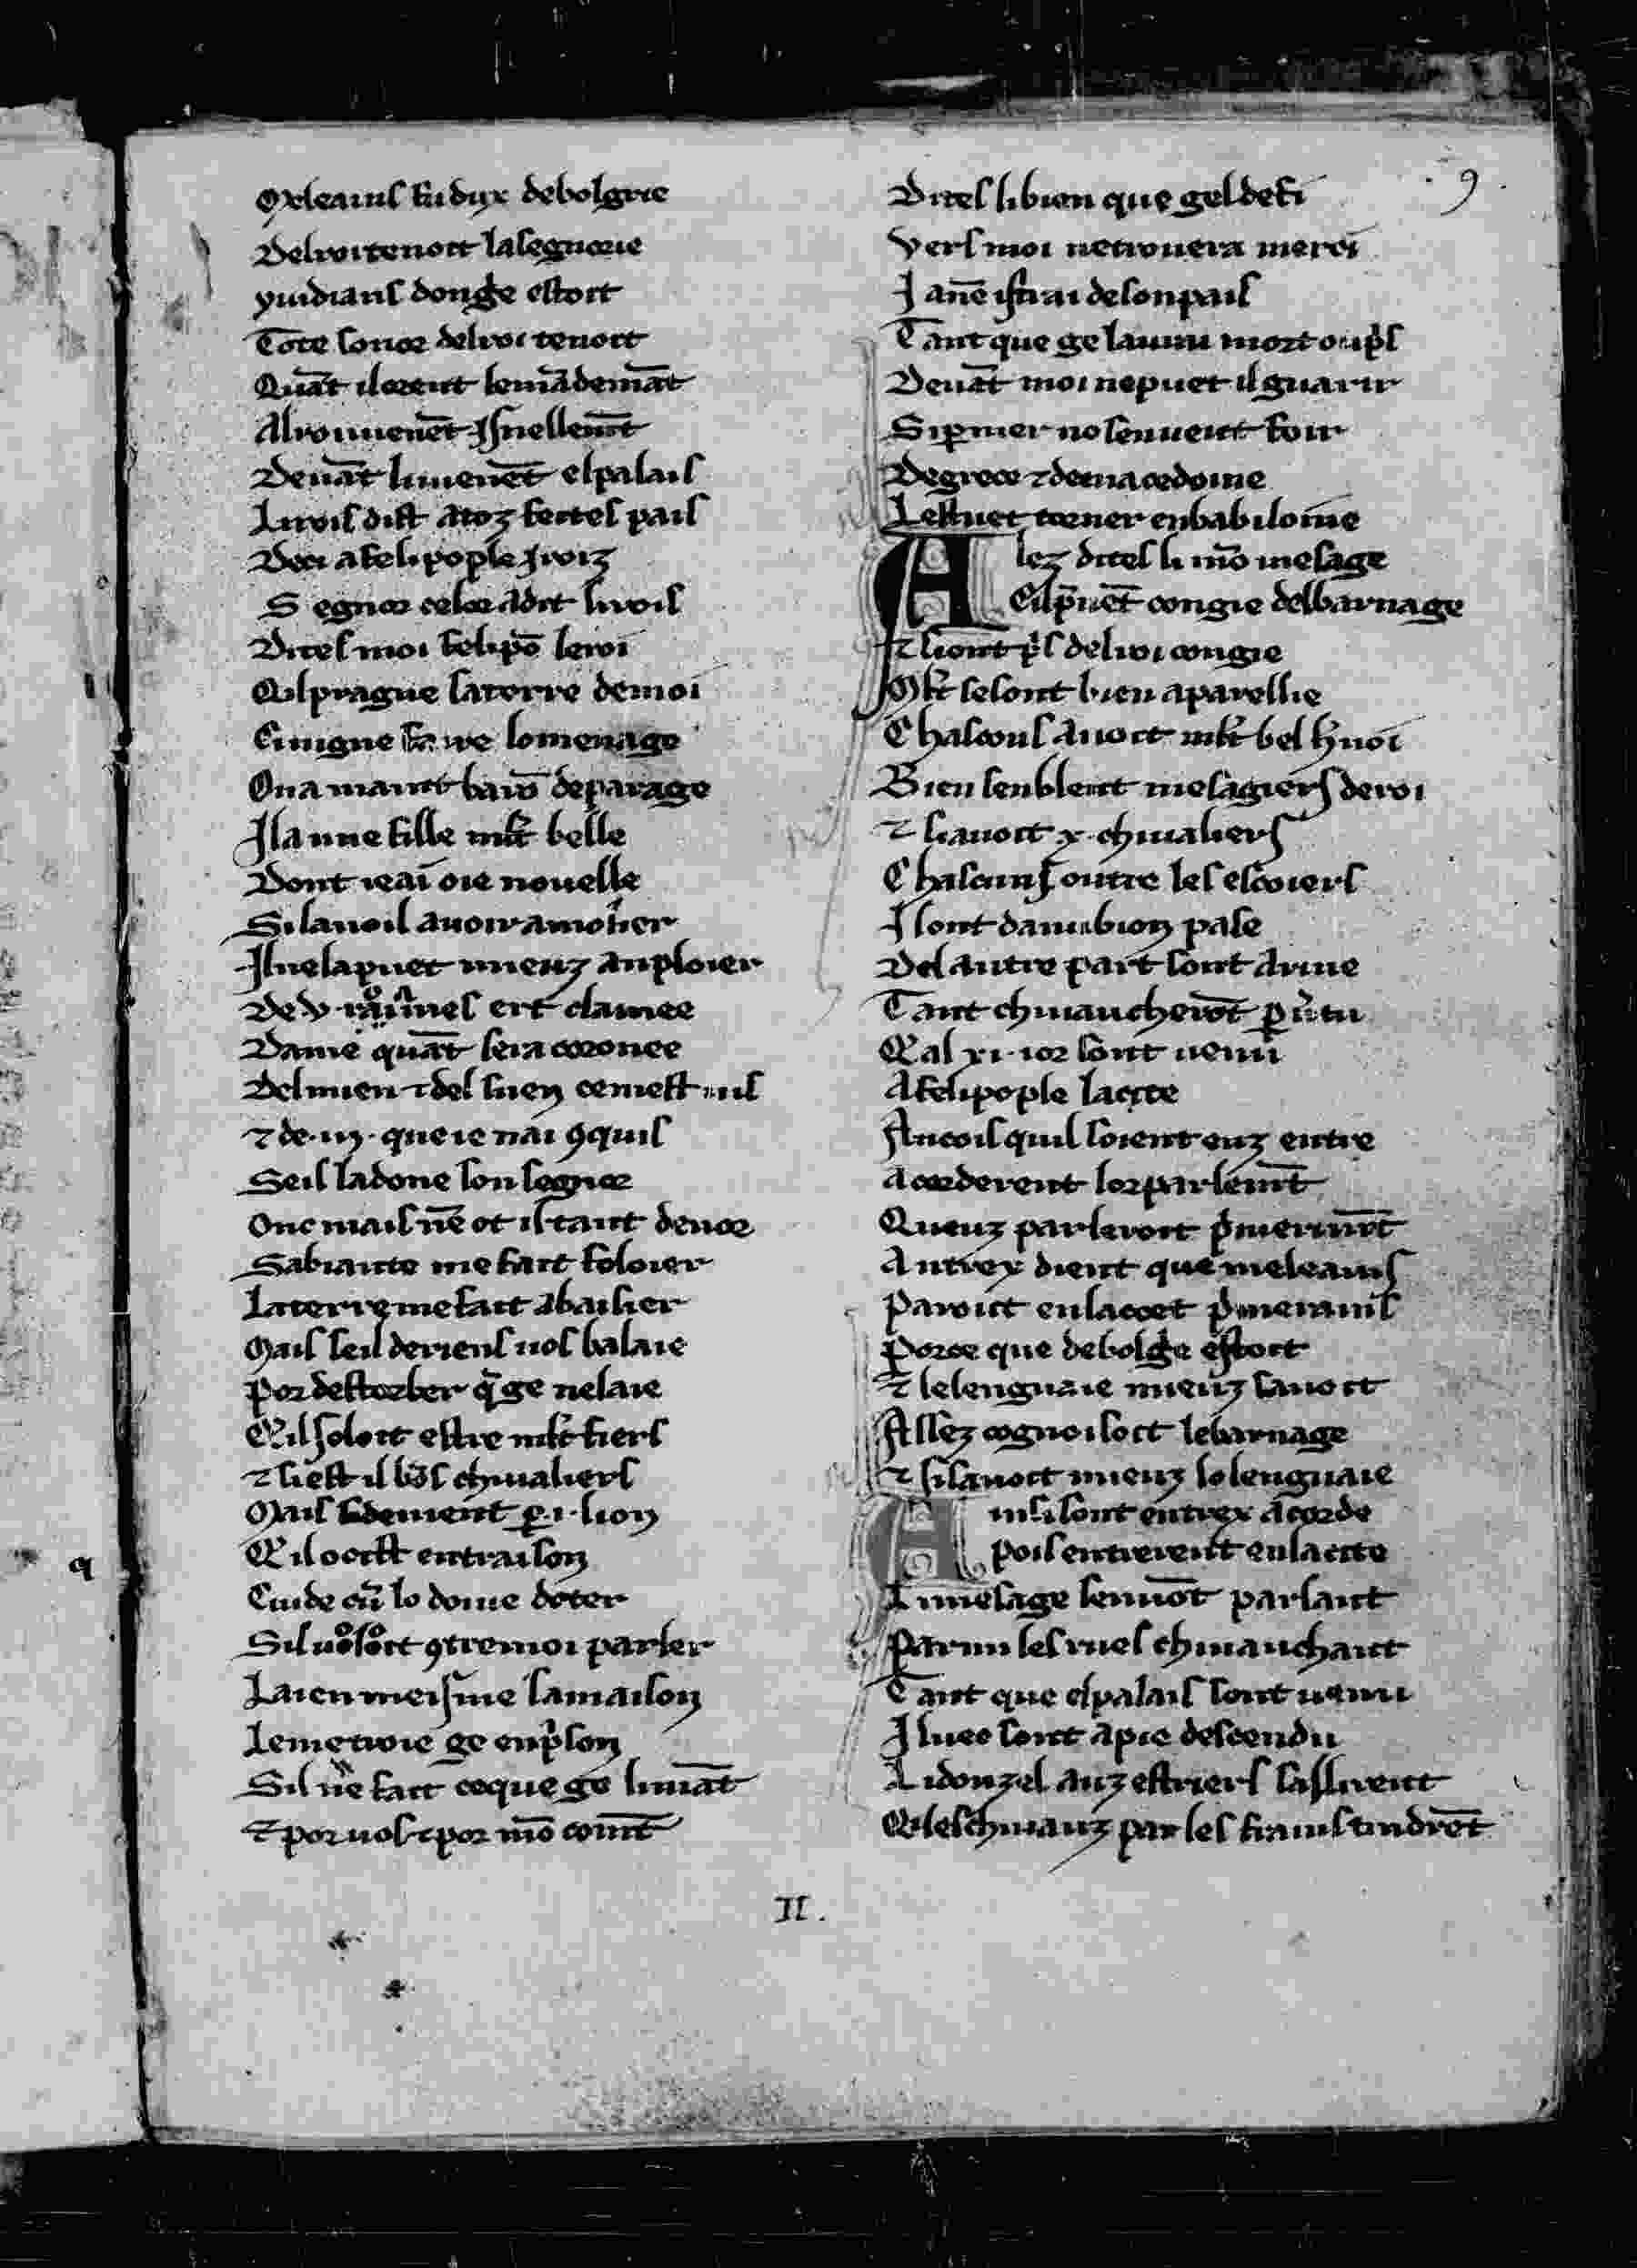 Meleains fu dux de bolgrie
Del roi tenoit la segnorie
yuidians donge estoit
Tote sonor del roi tenoit
Quāt il oent lemādemāt
Al roi uienēt isnellem̄t
Deuāt li uienēt el palais
Li rois dist atoz fertes pais
Deci afelipople iroiz
S egnor celor adit li rois
Dites moi felipō le roi
Qil pragne la terre de moi
Cuuigne faire lomenage
Ou a maint barō de parage
Il a une fille ml̄t belle
Dont ieai oie nouelle
Si la uoil auoir a moil̄ier
Il ne la puet mieuz anploier
De .v. raumes ert clamee
Dame quāt sera coronee
Del mien ⁊ del suen ce mest uis
⁊ de .iij. que ie nai ꝯquis
Se il la done son segnor
Onc mais nē ot il tant denor
Sabiaute me fait foloier
La terre me fait abaisier
Mais se il de riens uos balaie
Por destorber q̄ ge ne laie
Qil soloit estre ml̄t fiers
⁊ si est il bōs chiualiers
Mais solement ꝑ .i. lion
Qil ocist en traison
Cuide oū lo doiue doter
Sil uosoit ꝯtre moi parler
La ien meisme sa maison
Le metroie ge en pͥson
Sil nē fait ce que ge li māt
⁊ por uos ⁊ por mō com̄t
9
Dites li bien que gel defi
Vers moi ne trouera merci
I a nē istrai de son pais
Tant que ge laurai mort o pͥs
Deuāt moi ne puet il guarir
Si ꝑ mer no senueut foir
De grece ⁊ de macedoine
Lestuet torner en babiloine
A lez dites li mō mesage
Cil pͥnēt congie del barnage
⁊ si ont pͥs del roi congie
Ml̄t se sont bien aparellie
C hascuns auoit ml̄t bel ꝯroi
Bien senblent mesagiers de roi
⁊ si auoit .x. chiualiers
C hascuns outre les escoiers
I l sont danubion pase
Del autre part sont ariue
Tant chiuaucherōt ꝑ uͥtu
Qal .xi. ior sont uenu
A felipople la cite
Ancois quil soient enz entre
Acorderent lor parlem̄t
Queuz parleroit pͥmeirem̄t
Antrex dient que meleains
Paroist en la cort pͥmerains
Porce que de bolgͥe estoit
⁊ le lenguaie mieuz sauoit
Assez cognoisoit le barnage
⁊ si sauoit mieuz lo lenguaie
A insi sont entrex acorde
Pois entrerent en la cite
Li mesage sen uōt parlant
Parmi les rues chiuauchant
Tant que el palais sont uenu
I luec sont a pie descendu
Li donzel auz estriers saslirent
Qi les chiuauz par les frains tindrēt
II.